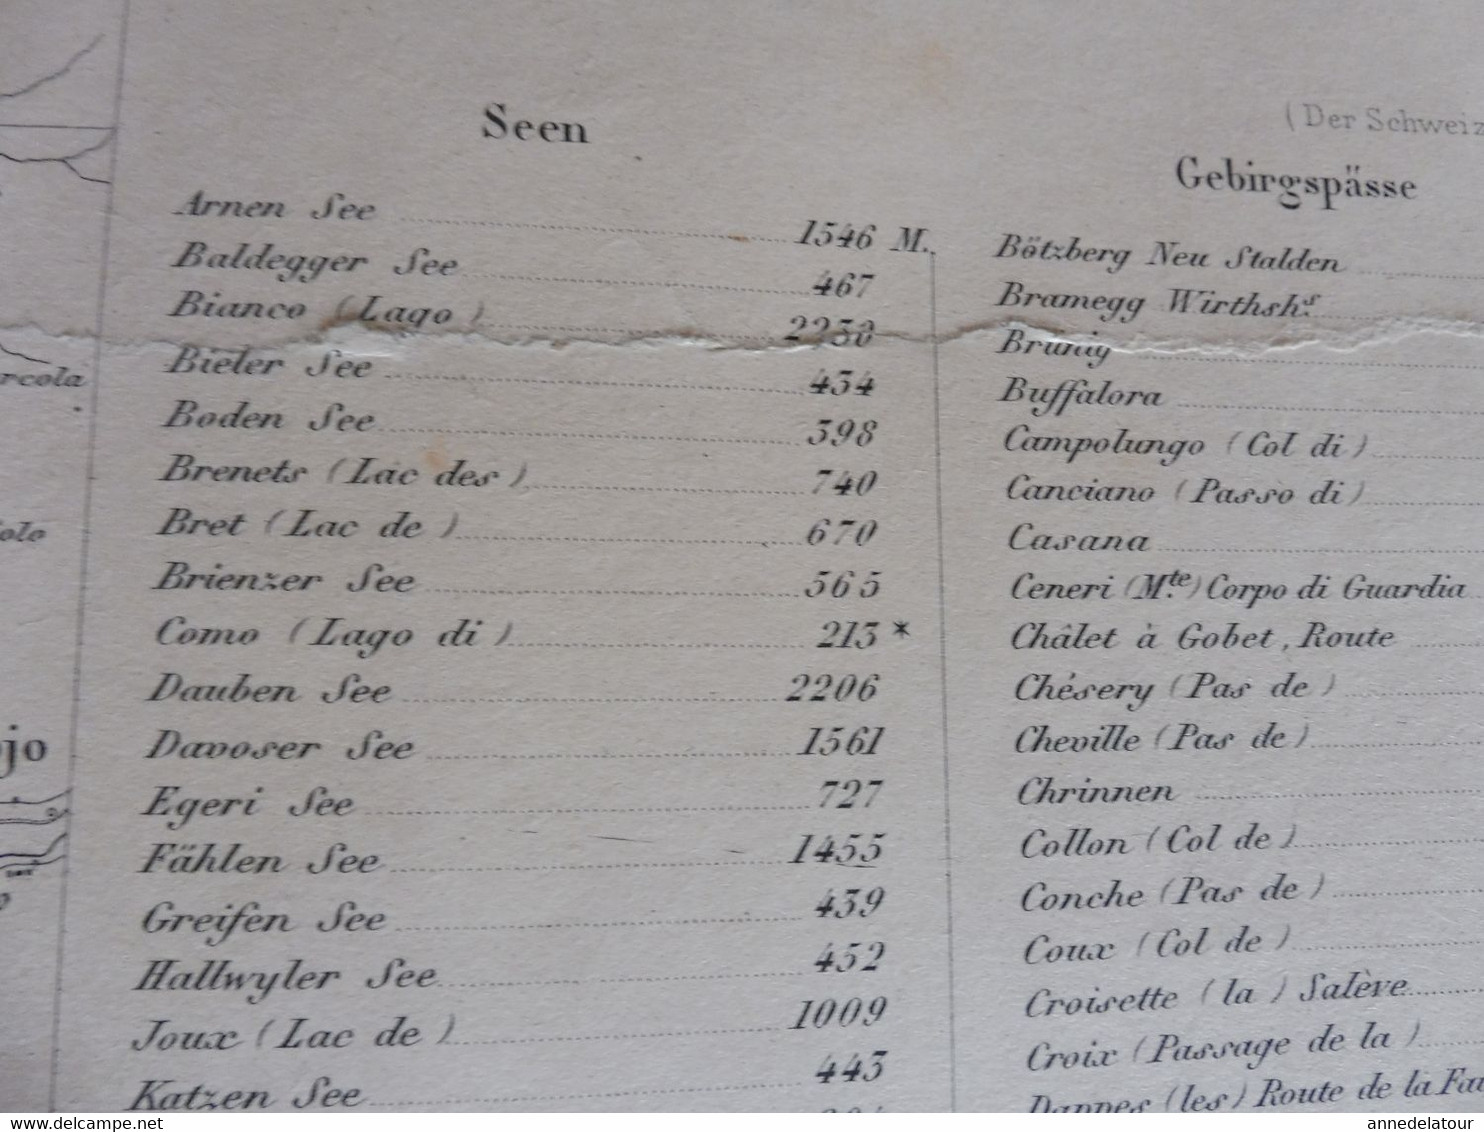 Seen
Arnen See 1546 M.
Baldegger See 467
Bianco (Lago) 2230
Bieler See 434
Boden See 398
Brenets (Lac des) 740
Bret (Lac de) 670
Brienzer See 565
Como (Lago di) 213 *
Dauben See 2206
Davoser See 1561
Egeri See 727
Fählen See 1455
Greifen See 439
Hallwyler See 452
Joux (Lac de) 1009
Katzen See 443
(Der Schweiz
Gebirgspässe
Bötzberg Neu Stalden
Bramegg Wirthshs.
Brünig
Buffalora
Campolungo (Col di)
Canciano (Passo di)
Casana
Ceneri (Mte.) Corpo di Guardia
Châlet à Gobet, Route
Chésery (Pas de)
Cheville (Pas de)
Chrinnen
Collon (Col de)
Conche (Pas de)
Coux (Col de)
Croisette (la) Salève
Croix (Passage de la)
Dappes (les) Route de la Fau
rcola
olo
ojo
www.delcampe.net
annedelatour